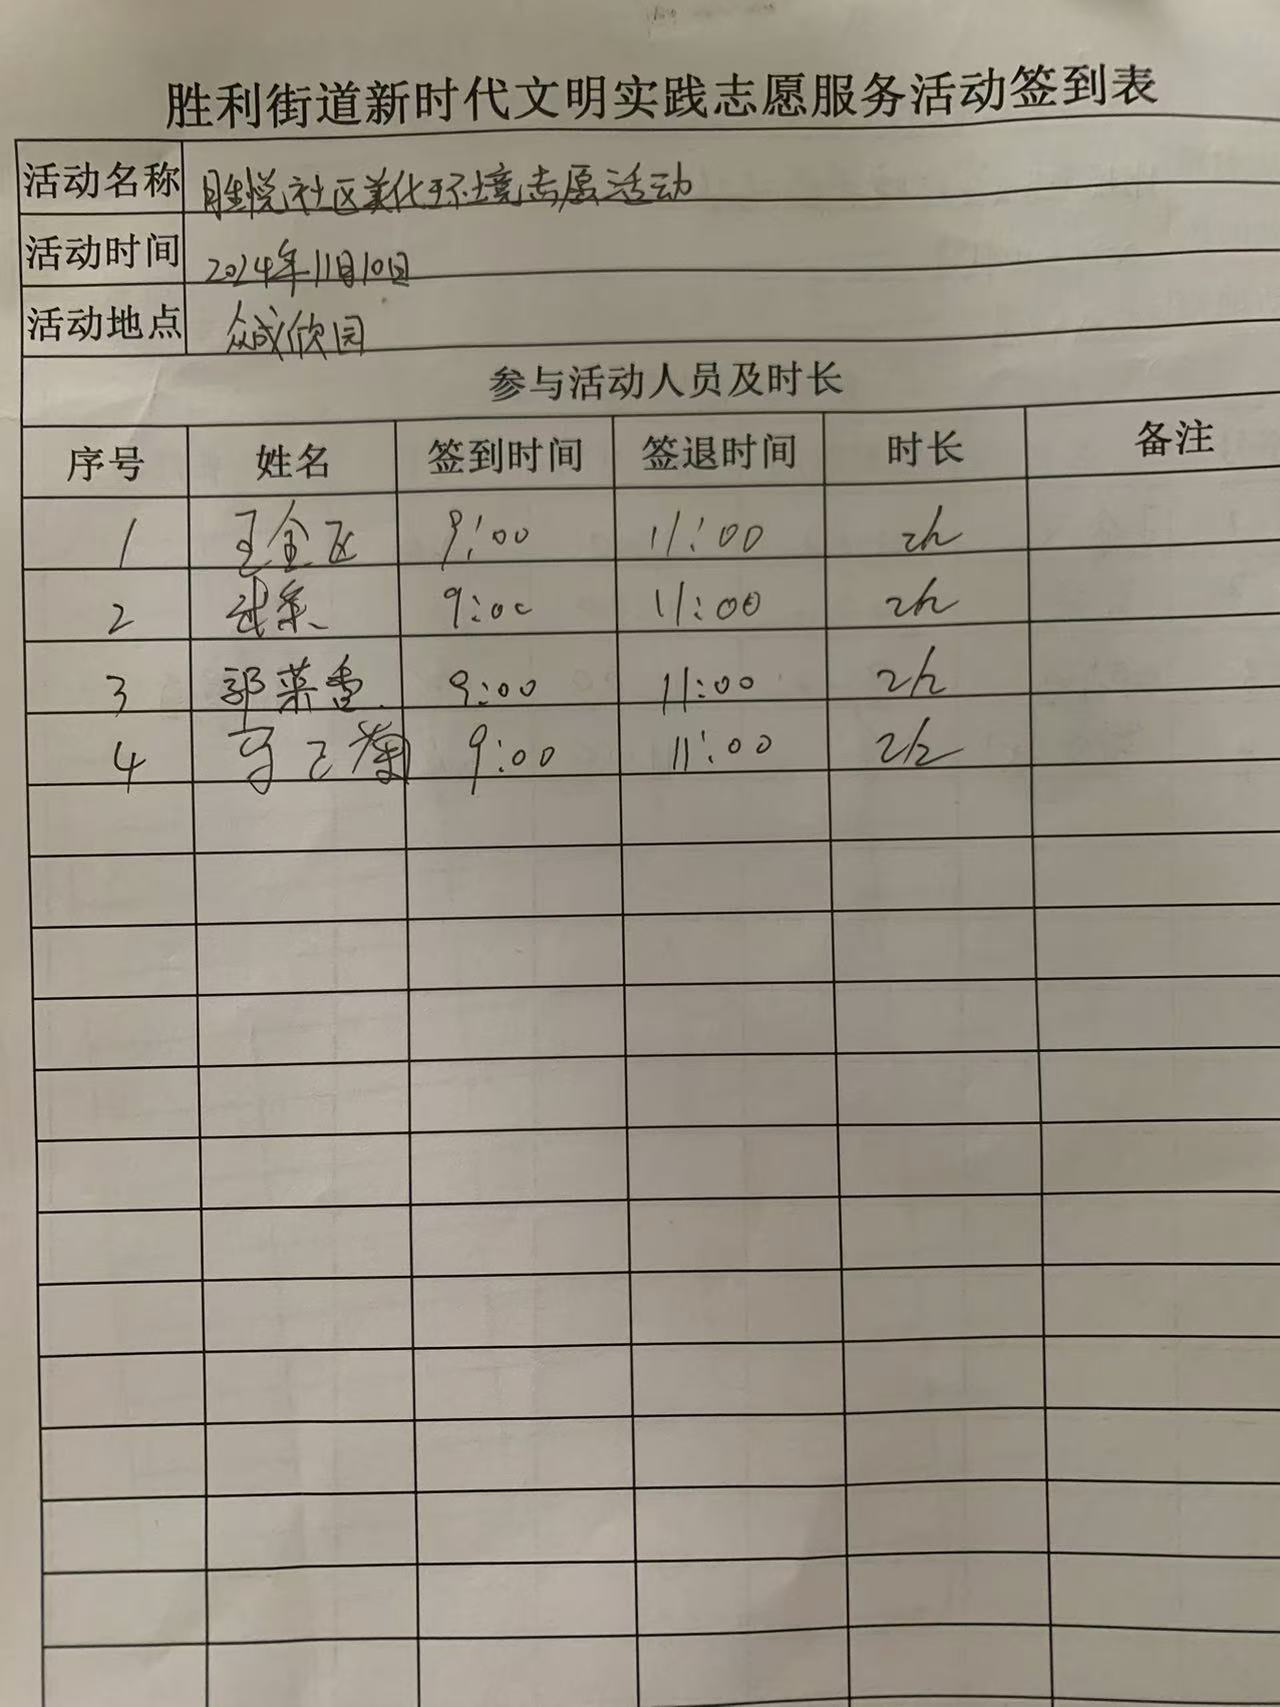 胜利街道新时代文明实践志愿服务活动签到表
活动名称 胜悦社区美化环境志愿活动
活动时间 2024年11月10日
活动地点 众成欣园
参与活动人员及时长
序号 姓名 签到时间 签退时间 时长 备注
1 9:00 11:00 2h
2 9:00 11:00 2h
3 郭菜香 9:00 11:00 2h
4 9:00 11:00 2h